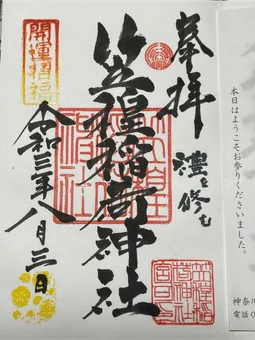 奉拝
禮を修む
笠䅣稲荷神社
開運招福
令和三年八月三日
本日はようこそお参りくださいました。
神奈川
電話(